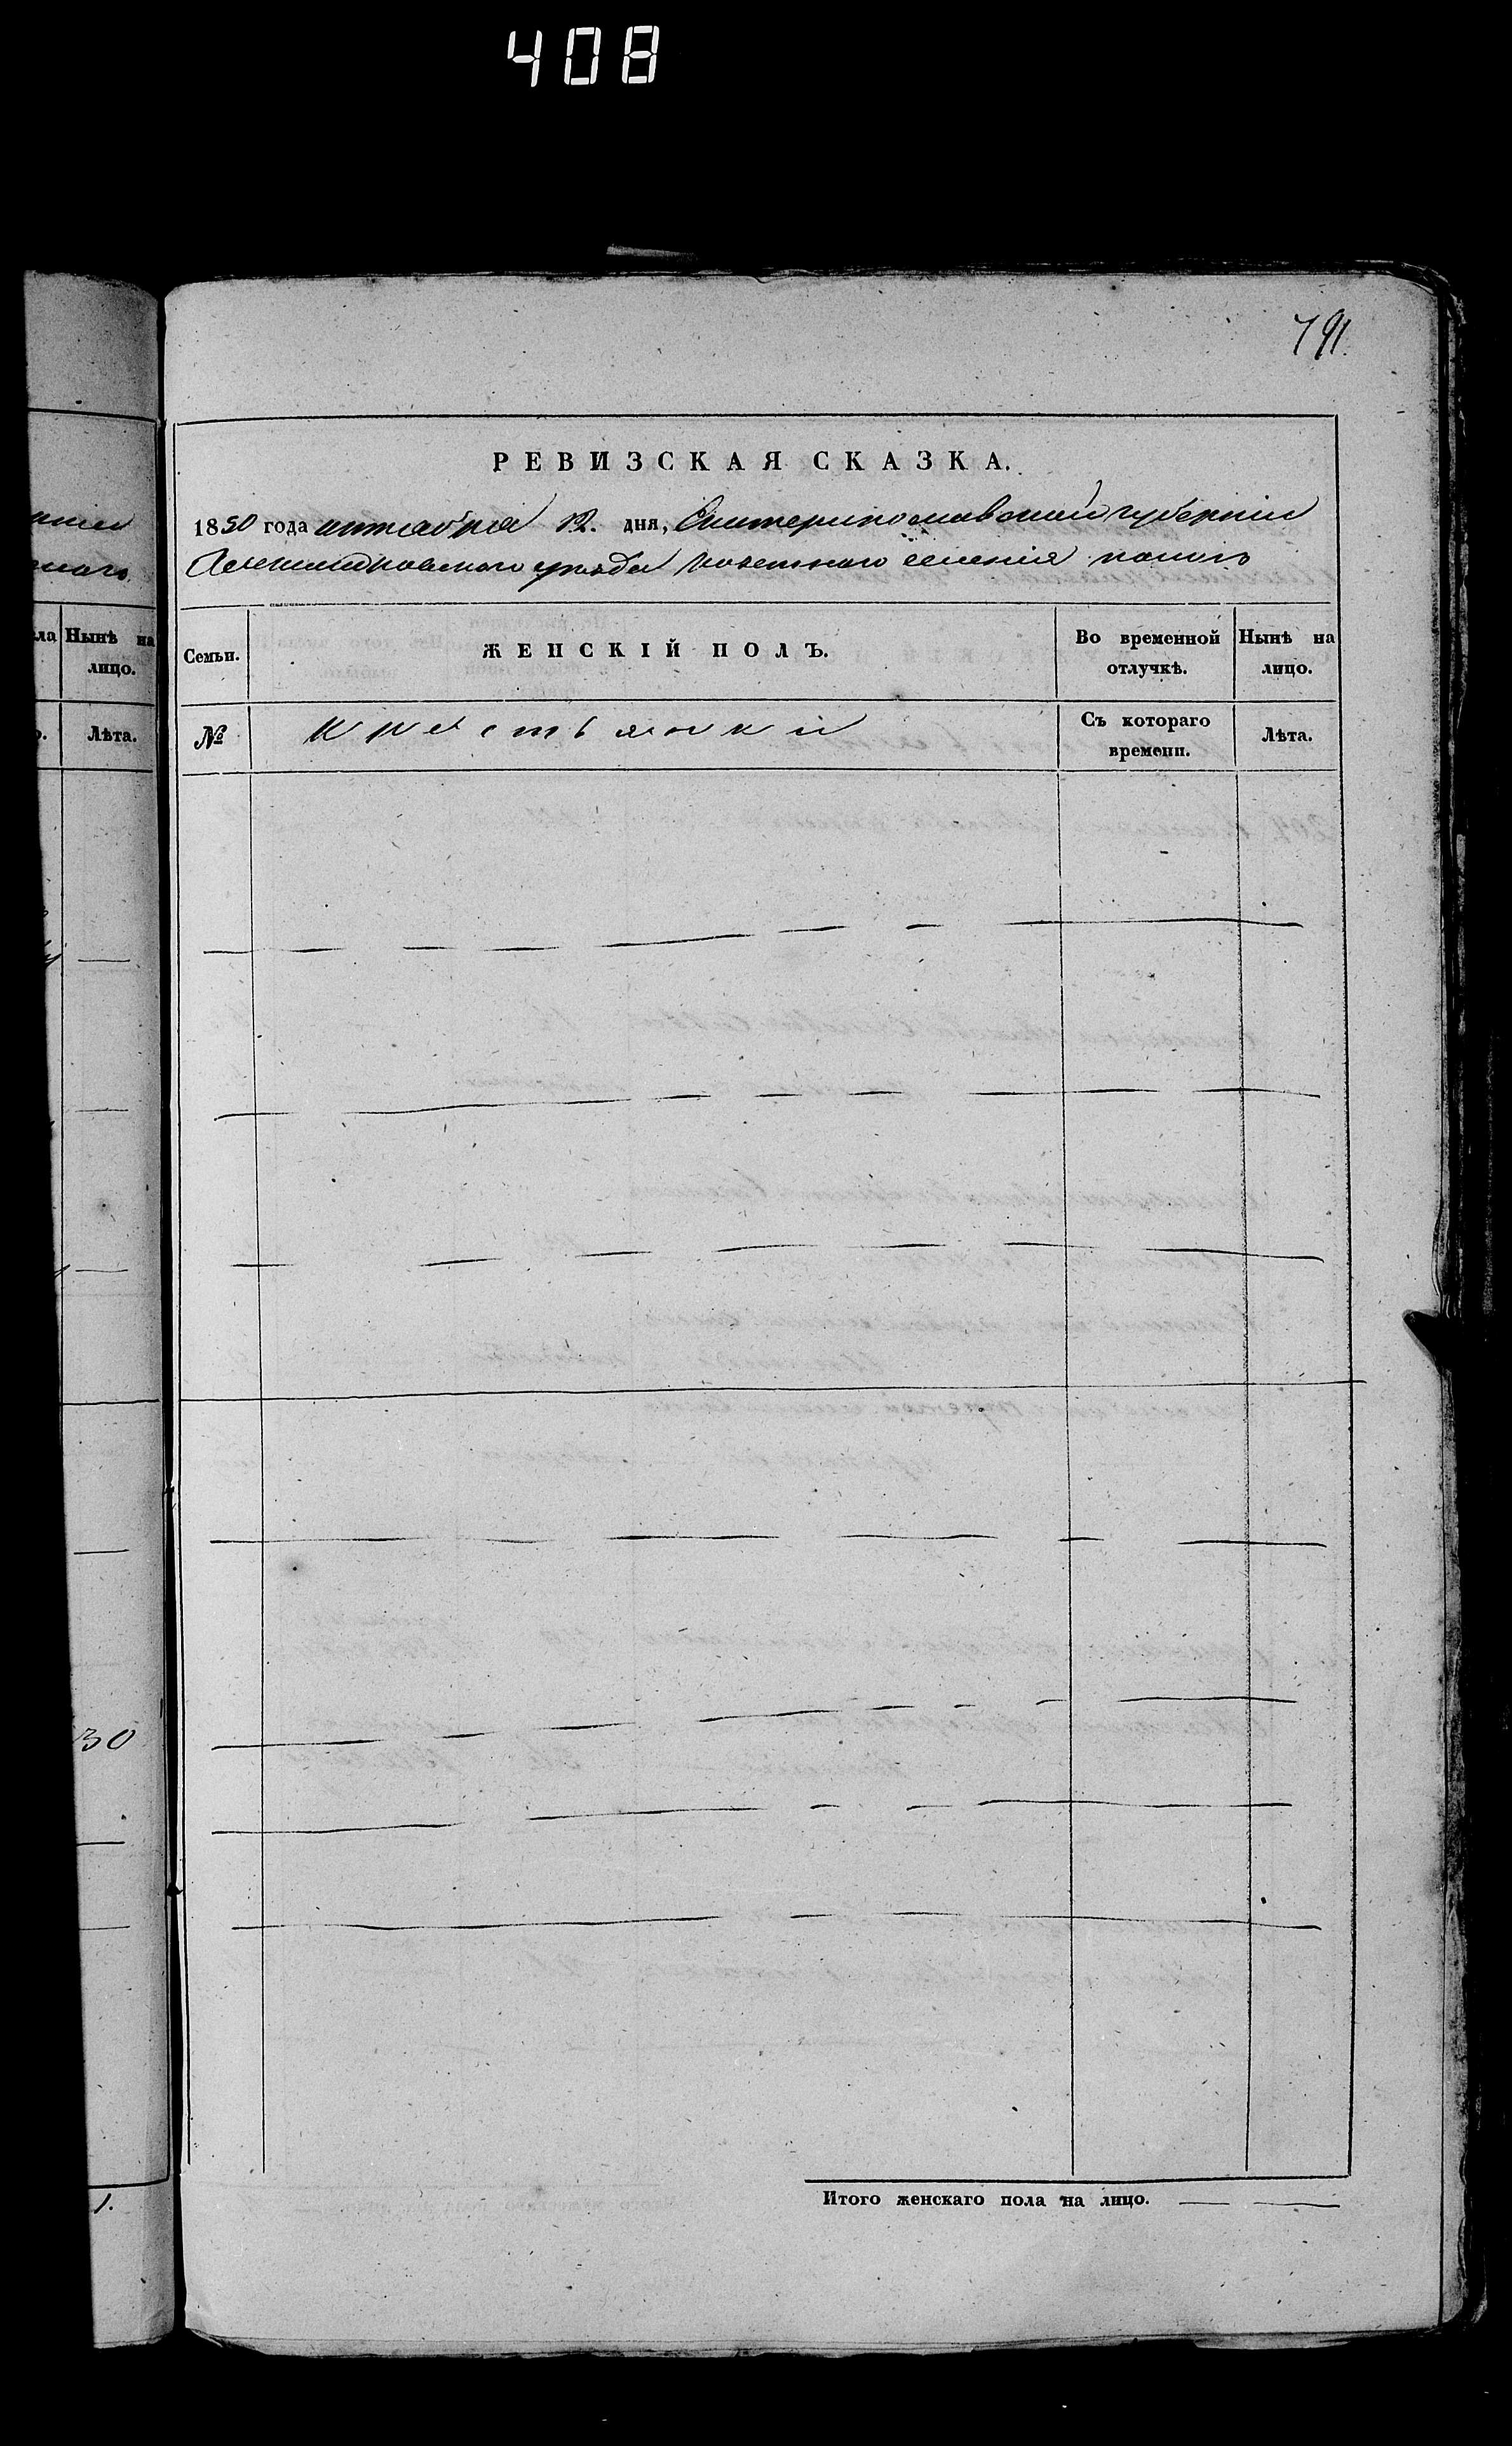 408
791.
РЕВИЗСКАЯ СКАЗКА.
1850 года октября 12. дня, Екатеринославской губернiи
Александровскаго уѣзда казеннаго селенiя
ла Нынѣ на лицо.
Лѣта.
Семьи. ЖЕНСКІЙ ПОЛЪ. Во временной отлучкѣ. Нынѣ на лицо.
№ Крестьянки Съ котораго времени. Лѣта.
30
1.
Итого женскаго пола на лицо. — —